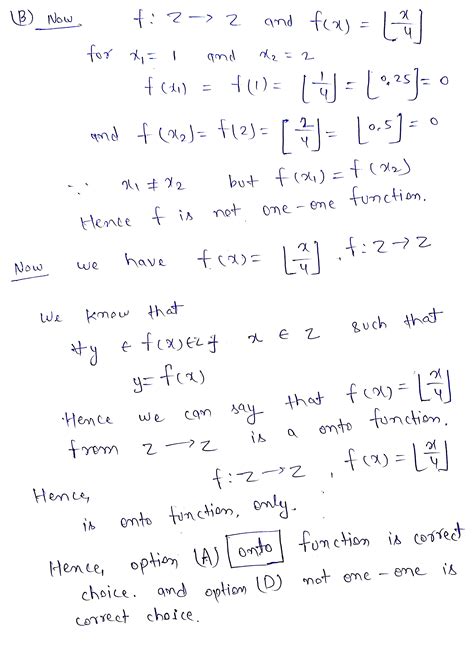 (B) Now f: Z → Z and f(x) = ⌊x/4⌋
for x₁ = 1 and x₂ = 2
f(x₁) = f(1) = ⌊1/4⌋ = ⌊0.25⌋ = 0
and f(x₂) = f(2) = ⌊2/4⌋ = ⌊0.5⌋ = 0
∵ x₁ ≠ x₂ but f(x₁) = f(x₂)
Hence f is not one-one function.
Now we have f(x) = ⌊x/4⌋, f: Z → Z
We know that
∀y ∈ f(x) ∈ Z ∃ x ∈ Z such that
y = f(x)
Hence we can say that f(x) = ⌊x/4⌋
from Z → Z is a onto function.
Hence, f: Z → Z, f(x) = ⌊x/4⌋
is onto function, only.
Hence, option (A) onto function is correct
choice. and option (D) not one-one is
correct choice.